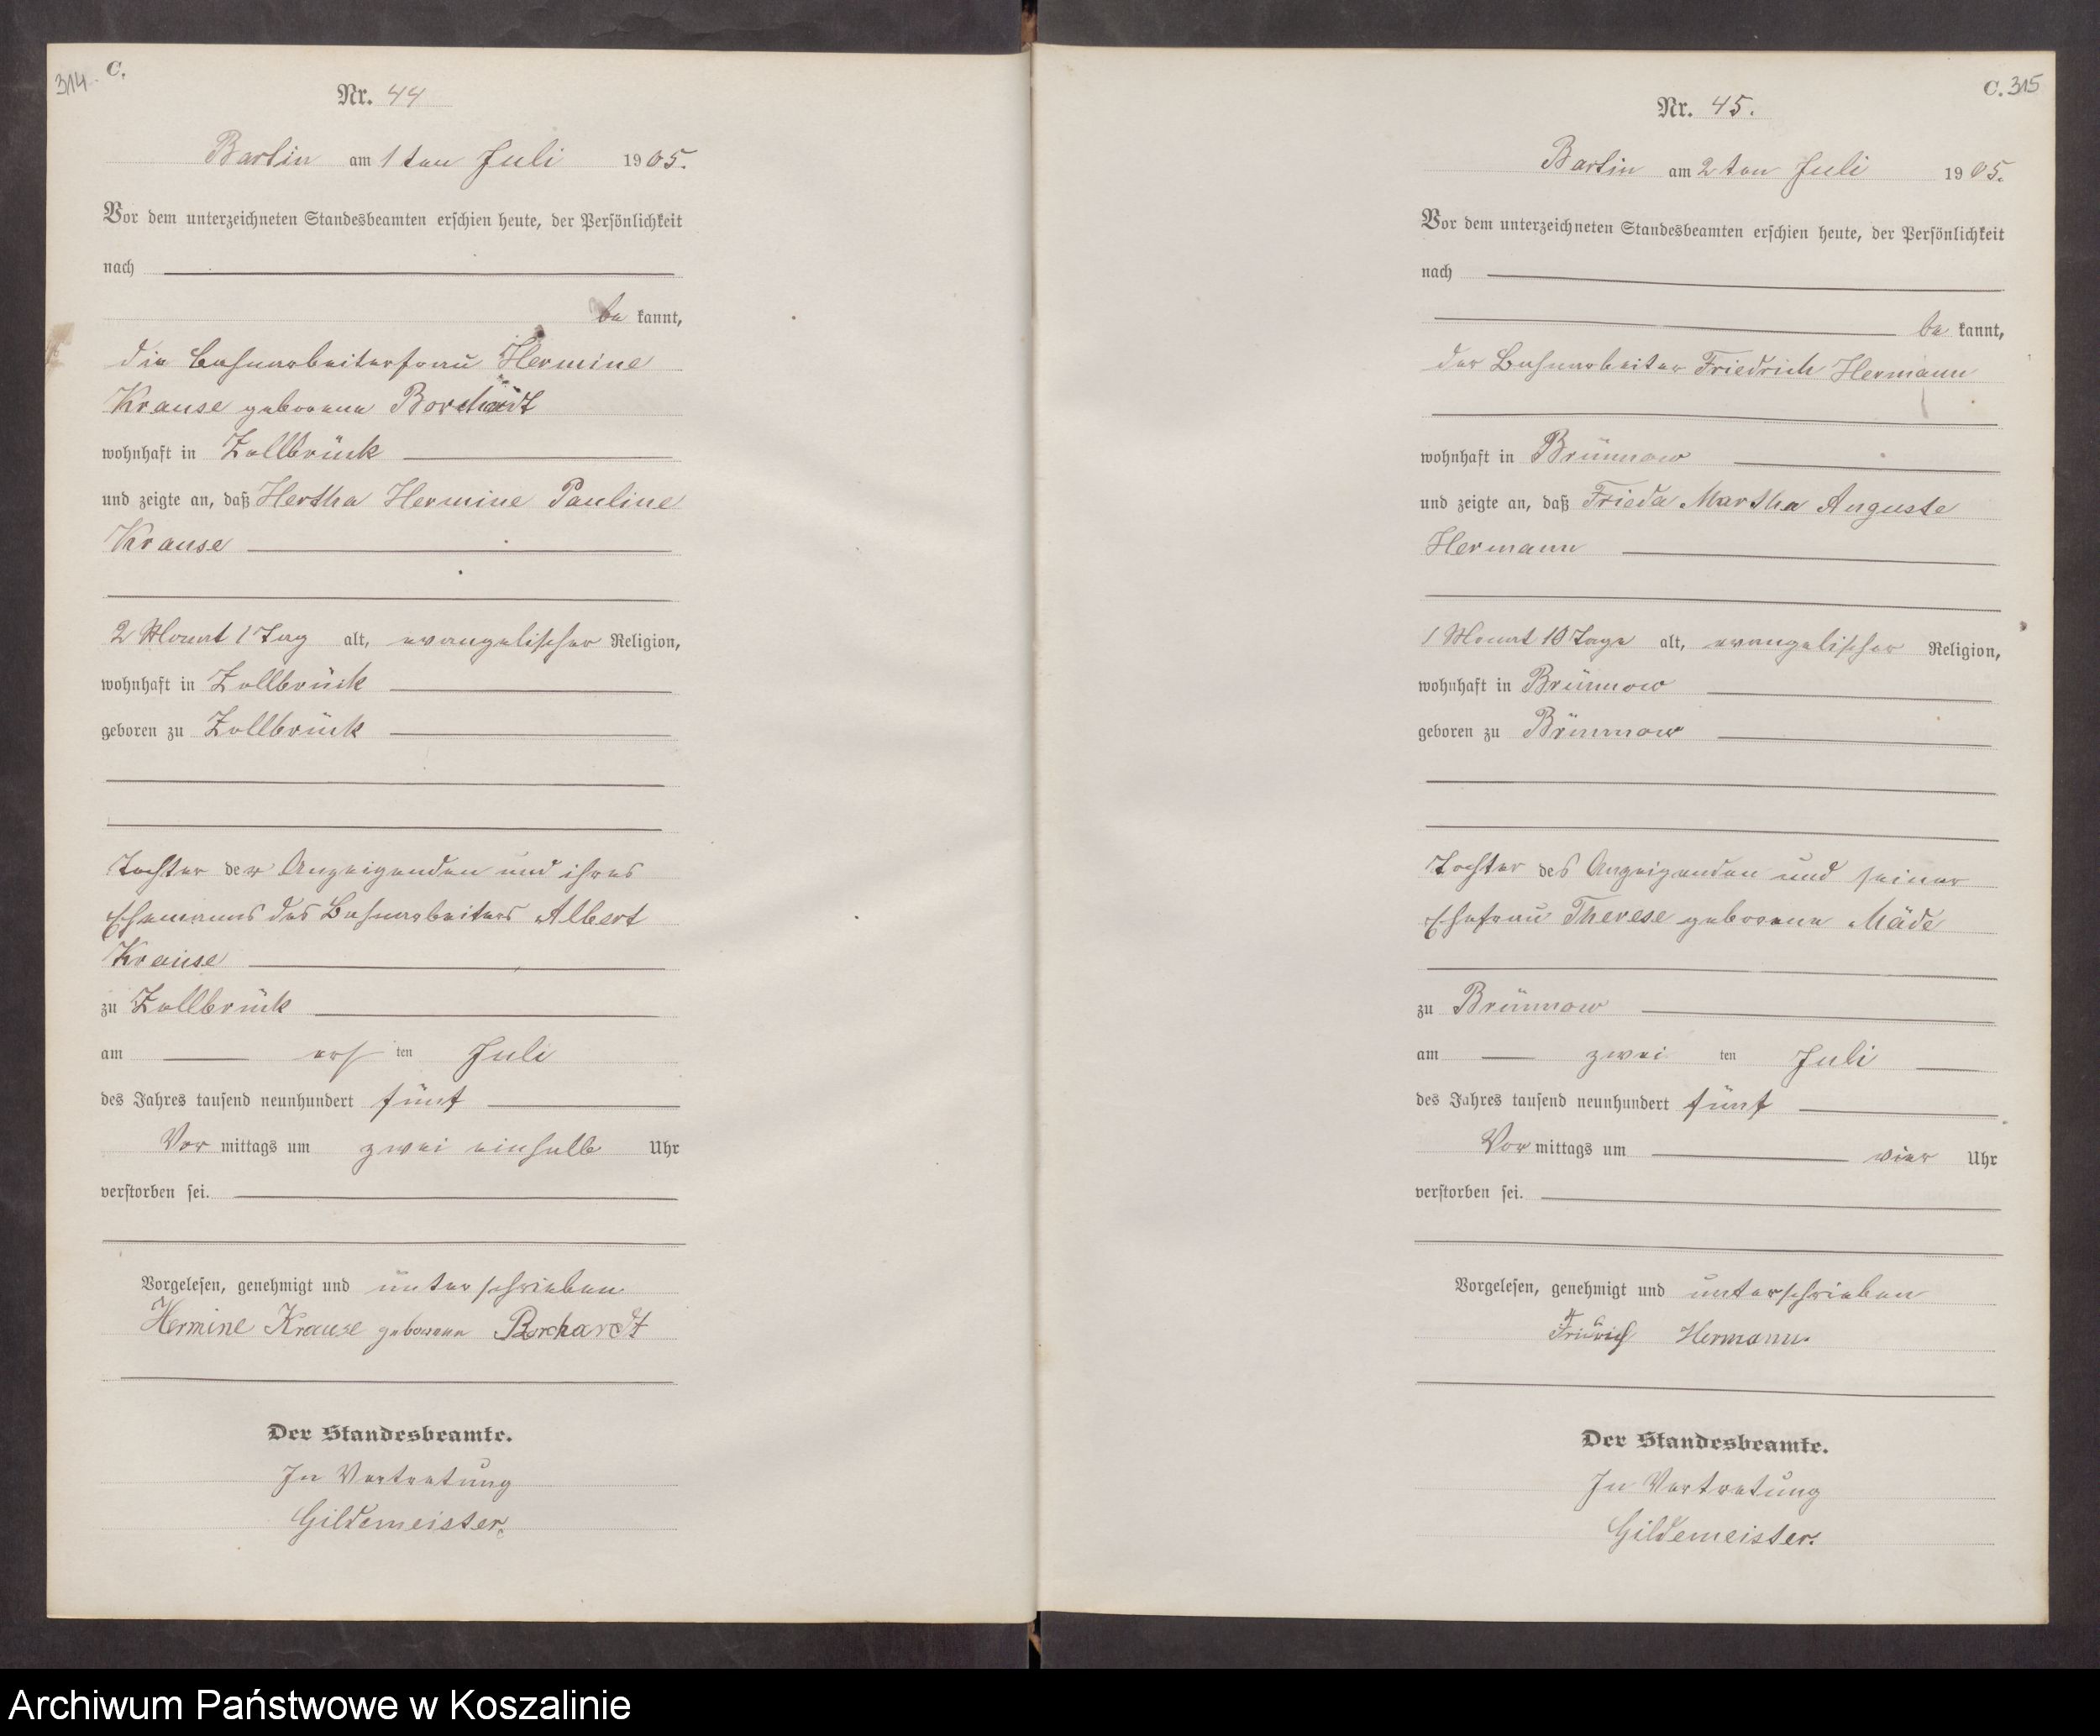 314.
C.
Nr. 44
Bartin am 1ten Juli 1905.
Vor dem unterzeichneten Standesbeamten erschien heute, der Persönlichkeit
nach
be kannt,
die Bahnarbeiterfrau Hermine
Krause geborene Borchardt
wohnhaft in Zollbrück
und zeigte an, daß Hertha Hermine Pauline
Krause
2 Monat 1 Tag alt, evangelischer Religion,
wohnhaft in Zollbrück
geboren zu Zollbrück
Tochter der Anzeigenden und ihres
Ehemanns des Bahnarbeiters Albert
Krause
zu Zollbrück
am ersten Juli
des Jahres tausend neunhundert fünf
Vor mittags um zwei einhalb Uhr
verstorben sei.
Vorgelesen, genehmigt und unterschrieben
Hermine Krause geborene Borchardt
Der Standesbeamte.
In Vertretung
Gildemeister.
C. 315
Nr. 45.
Bartin am 2ten Juli 1905.
Vor dem unterzeichneten Standesbeamten erschien heute, der Persönlichkeit
nach
be kannt,
der Bahnarbeiter Friedrich Hermann
wohnhaft in Brünnow
und zeigte an, daß Frieda Martha Auguste
Hermann
1 Monat 10 Tage alt, evangelischer Religion,
wohnhaft in Brünnow
geboren zu Brünnow
Tochter des Anzeigenden und seiner
Ehefrau Therese geborene Mäde
zu Brünnow
am zweiten Juli
des Jahres tausend neunhundert fünf
Vor mittags um vier Uhr
verstorben sei.
Vorgelesen, genehmigt und unterschrieben
Fridrich Hermann.
Der Standesbeamte.
In Vertretung
Gildemeister.
Archiwum Państwowe w Koszalinie